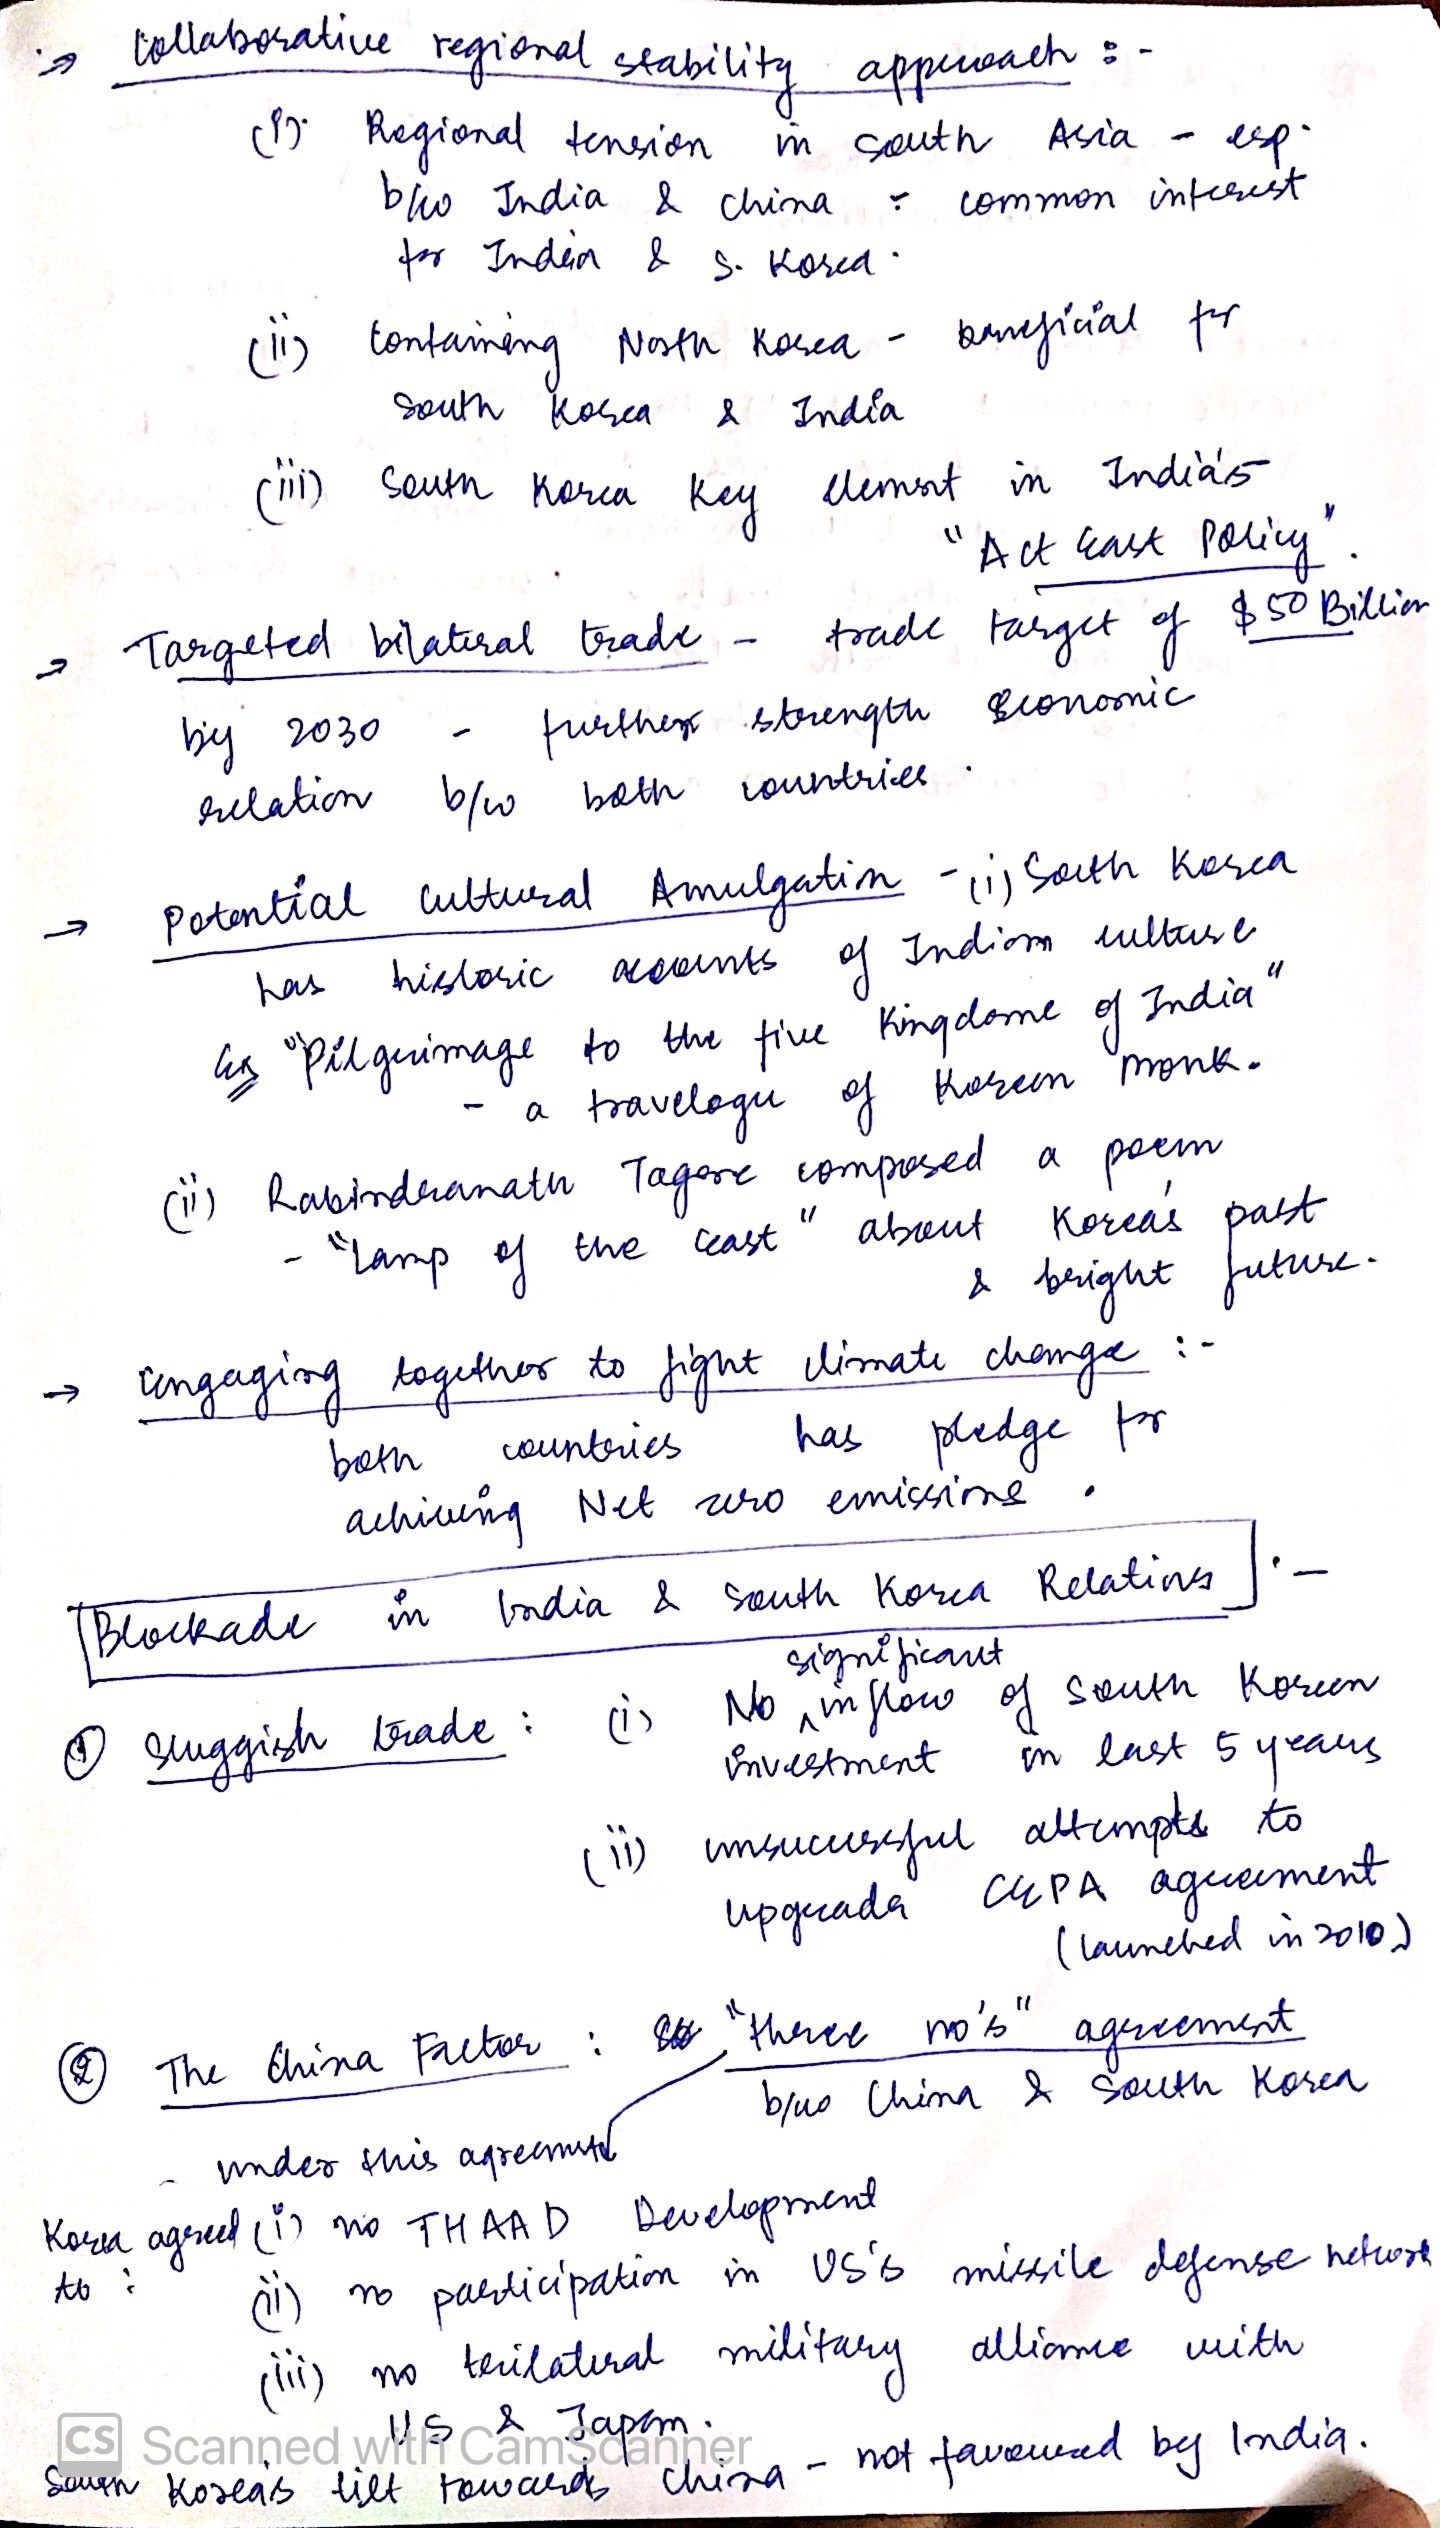 → Collaborative regional stability approach :-
(i). Regional tension in South Asia - esp.
b/w India & China : common interest
for India & S. Korea.
(ii) Containing North Korea - beneficial for
South Korea & India
(iii) South Korea key element in India's
"Act East Policy".
→ Targeted bilateral trade - trade target of $50 Billion
by 2030 - further strength economic
relation b/w both countries.
→ Potential Cultural Amulgation - (i) South Korea
has historic accounts of Indian culture
Eg "Pilgrimage to the five Kingdoms of India"
- a travelogu of Korean monk.
(ii) Rabindranath Tagore composed a poem
- "Lamp of the East" about Korea's past
& bright future.
→ Engaging together to fight climate change :-
both countries has pledge for
achieving Net zero emissions.
Blockade in India & South Korea Relations :-
significant
① Sluggish trade : (i) No ^ inflow of South Korean
investment in last 5 years
(ii) unsuccessful attempts to
upgrade CEPA agreement
(launched in 2010)
② The China Factor : "three no's" agreement
b/w China & South Korea
- under this agreement
Korea agreed (i) no THAAD Development
to : (ii) no participation in US's missile defense network
(iii) no trilateral military alliance with
US & Japan.
CS Scanned with CamScanner
South Korea's tilt towards China - not favoured by India.